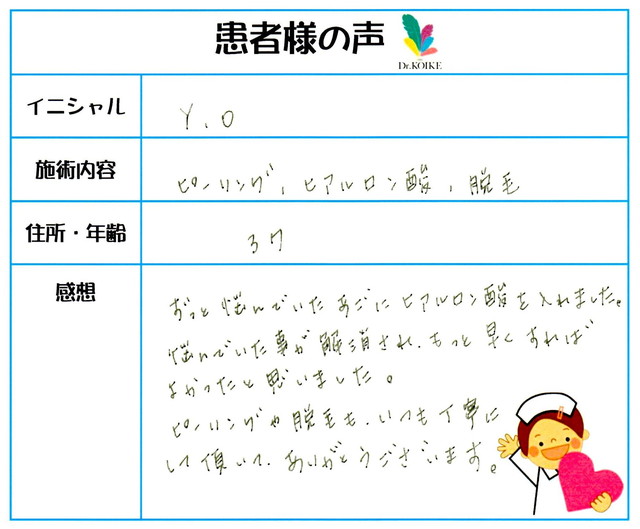 患者様の声
Dr.KOIKE
イニシャル
Y.O
施術内容
ピーリング, ヒアルロン酸, 脱毛
住所・年齢
37
感想
ずっと悩んでいたあごにヒアルロン酸を入れました。
悩んでいた事が解消され、もっと早くすれば
よかったと思いました。
ピーリングや脱毛も、いつも丁寧に
して頂いて、ありがとうございます。